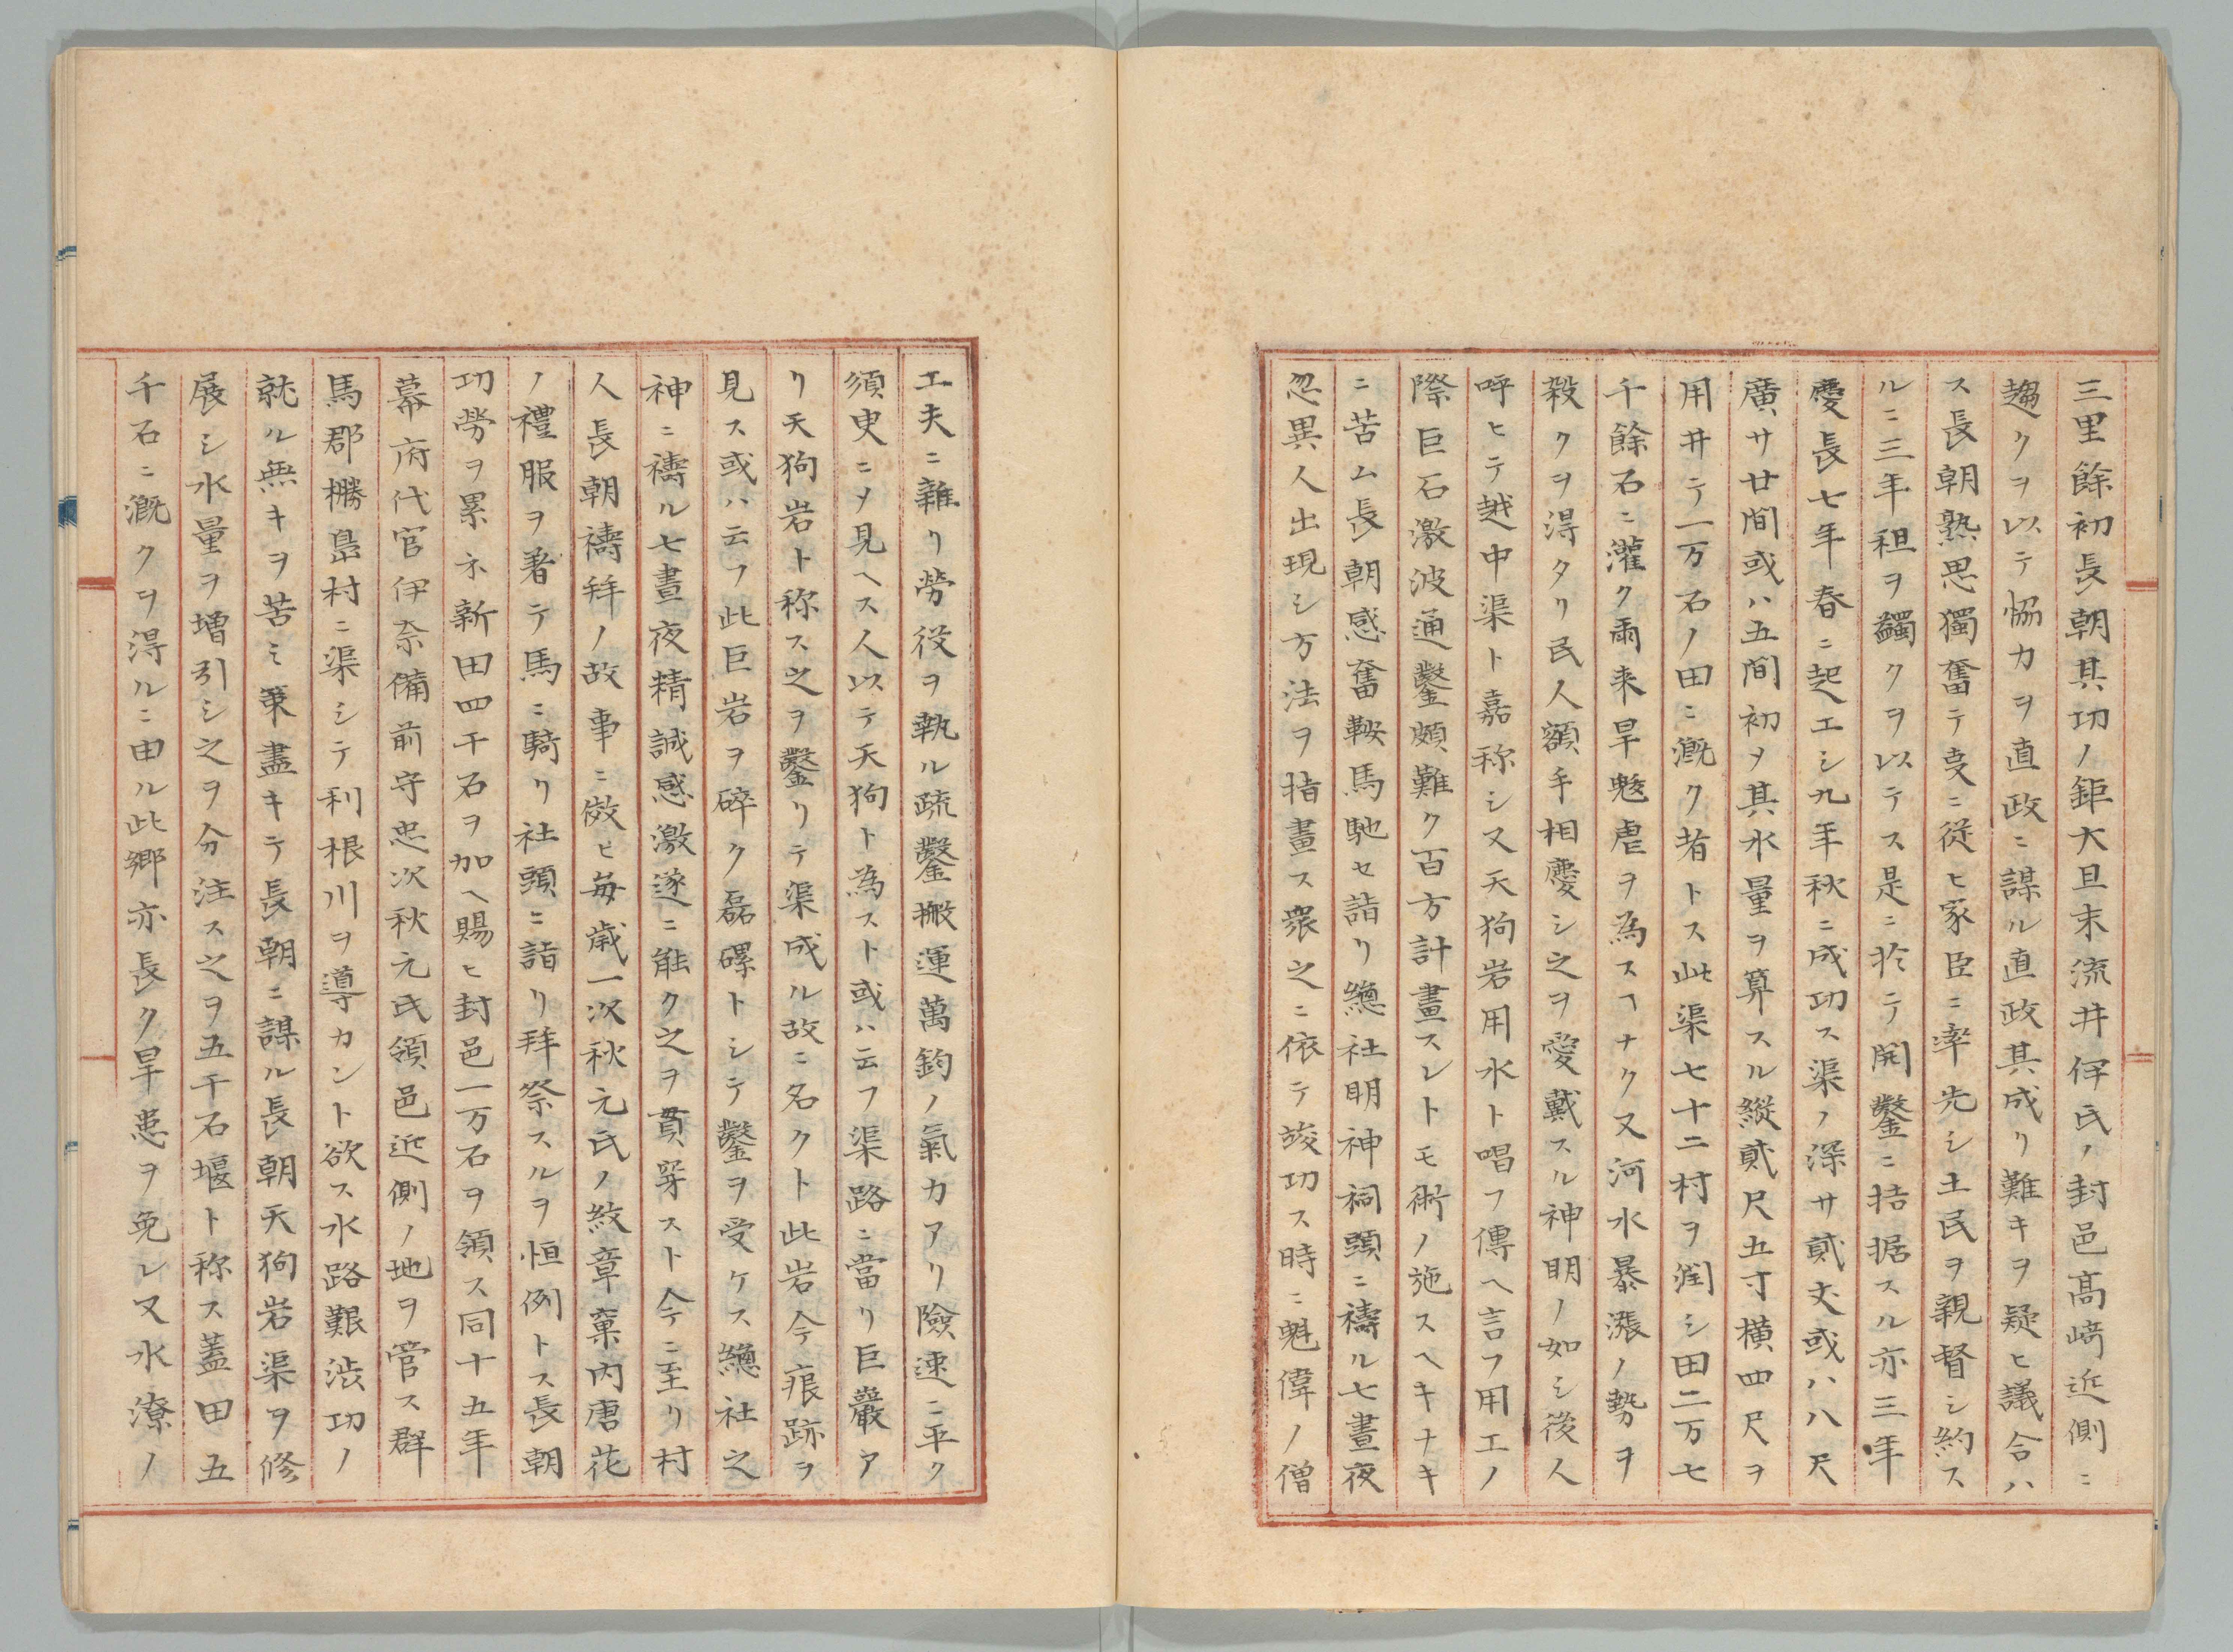 三里餘初長朝其功ノ鉅大且末流井伊氏ノ封邑髙﨑近側ニ
趨クヲ以テ恊力ヲ直政ニ謀ル直政其成リ難キヲ疑ヒ議合ハ
ス長朝熟思獨奮テ叓ニ従ヒ家臣ニ率先シ土民ヲ親督シ約ス
ルニ三年租ヲ蠲クヲ以テス是ニ於テ開鑿ニ拮据スル亦三年
慶長七年春ニ起エシ九年秋ニ成功ス渠ノ深サ貮丈或ハ八尺
廣サ廿間或ハ五間初ヲ其水量ヲ算スル縦貮尺五寸横四尺ヲ
用井テ一万石ノ田ニ漑ク者トス此渠七十二村ヲ潤シ田二万七
千餘石ニ灌ク雨来旱魃虐ヲ為スヿナク又河水暴漲ノ勢ヲ
殺クヲ得タリ民人額手相慶シ之ヲ愛戴スル神明ノ如シ後人
呼ヒテ越中渠ト嘉称シ又天狗岩用水ト唱フ傳ヘ言フ用工ノ
際巨石激波通鑿頗難ク百方計畫スレトモ術ノ施スヘキナキ
ニ苦ム長朝感奮鞍馬馳セ詣リ總社明神祠頭ニ禱ル七晝夜
忽異人出現シ方法ヲ指畫ス衆之ニ依テ竣功ス時ニ魁偉ノ僧
工夫ニ雜リ勞役ヲ執ル疏鑿搬運萬鈞ノ氣力アリ險速ニ平ク
須臾ニヲ見ヘス人以テ天狗ト為スト或ハ云フ渠路ニ當リ巨巖ア
リ天狗岩ト称ス之ヲ鑿リテ渠成ル故ニ名クト此岩今痕跡ヲ
見ス或ハ云フ此巨岩ヲ碎ク磊磥トシテ鑿ヲ受ケス總社之
神ニ禱ル七晝夜精誠感激遂ニ能ク之ヲ貫穿スト今ニ至リ村
人長朝禱拜ノ故事ニ倣ヒ毎歳一次秋元氏ノ紋章菓内唐花
ノ禮服ヲ著テ馬ニ騎リ社頭ニ詣リ拜祭スルヲ恒例トス長朝
功勞ヲ累ネ新田四千石ヲ加ヘ賜ヒ封邑一万石ヲ領ス同十五年
幕府代官伊奈備前守忠次秋元氏領邑近側ノ地ヲ管ス群
馬郡樆島村ニ渠シテ利根川ヲ導カント欲ス水路艱渋功ノ
就ル無キヲ苦ミ策盡キテ長朝ニ謀ル長朝天狗岩渠ヲ修
展シ水量ヲ増引シ之ヲ分注ス之ヲ五千石堰ト称ス蓋田五
千石ニ漑クヲ得ルニ由ル此郷亦長ク旱患ヲ免レ又水潦ノ